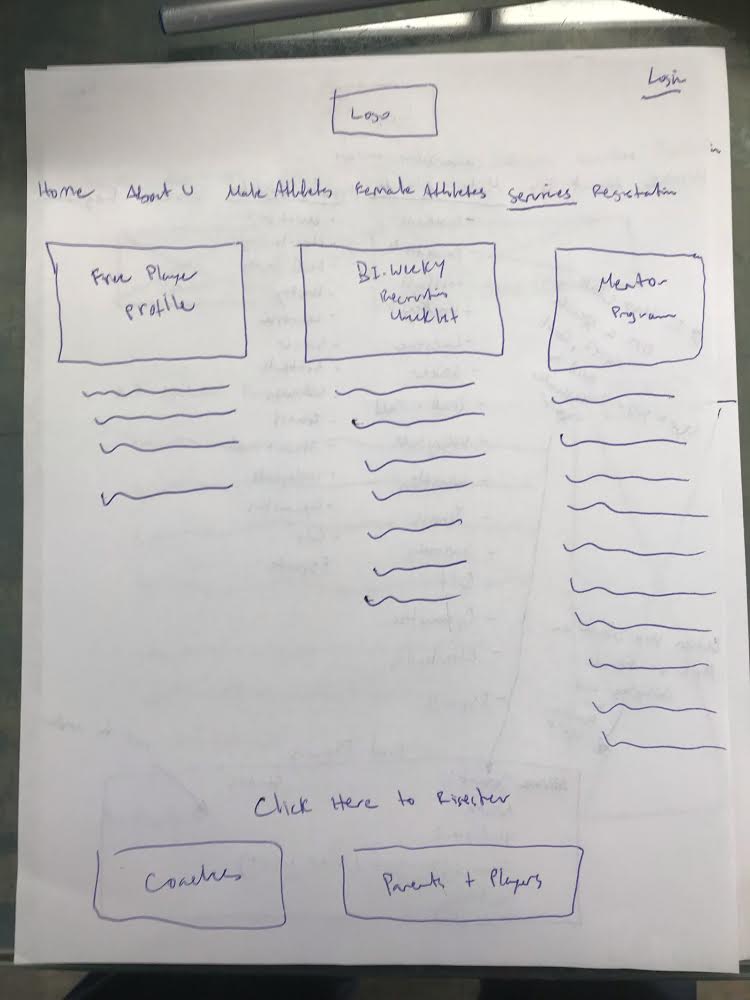 Login
Logo
Home About U Male Athletes Female Athletes Services Registration
Free Player
Profile
BI-weekly
Recruiting
Checklist
Mentor
Program
Click Here to Rigester
Coaches
Parents + Players